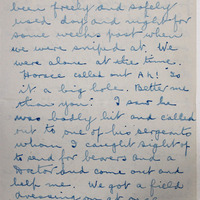 been freely and safely
used day and night for
some weeks past when
we were sniped at. We
were alone at the time.
Horace called out Ah! Is
it a big hole. Better me
than you". I saw he
was badly hit and called
out to one of his sergeants
whom I caught sight of
to send for bearers and a
Doctor and come out and
help me. We got a field
dressing on at once